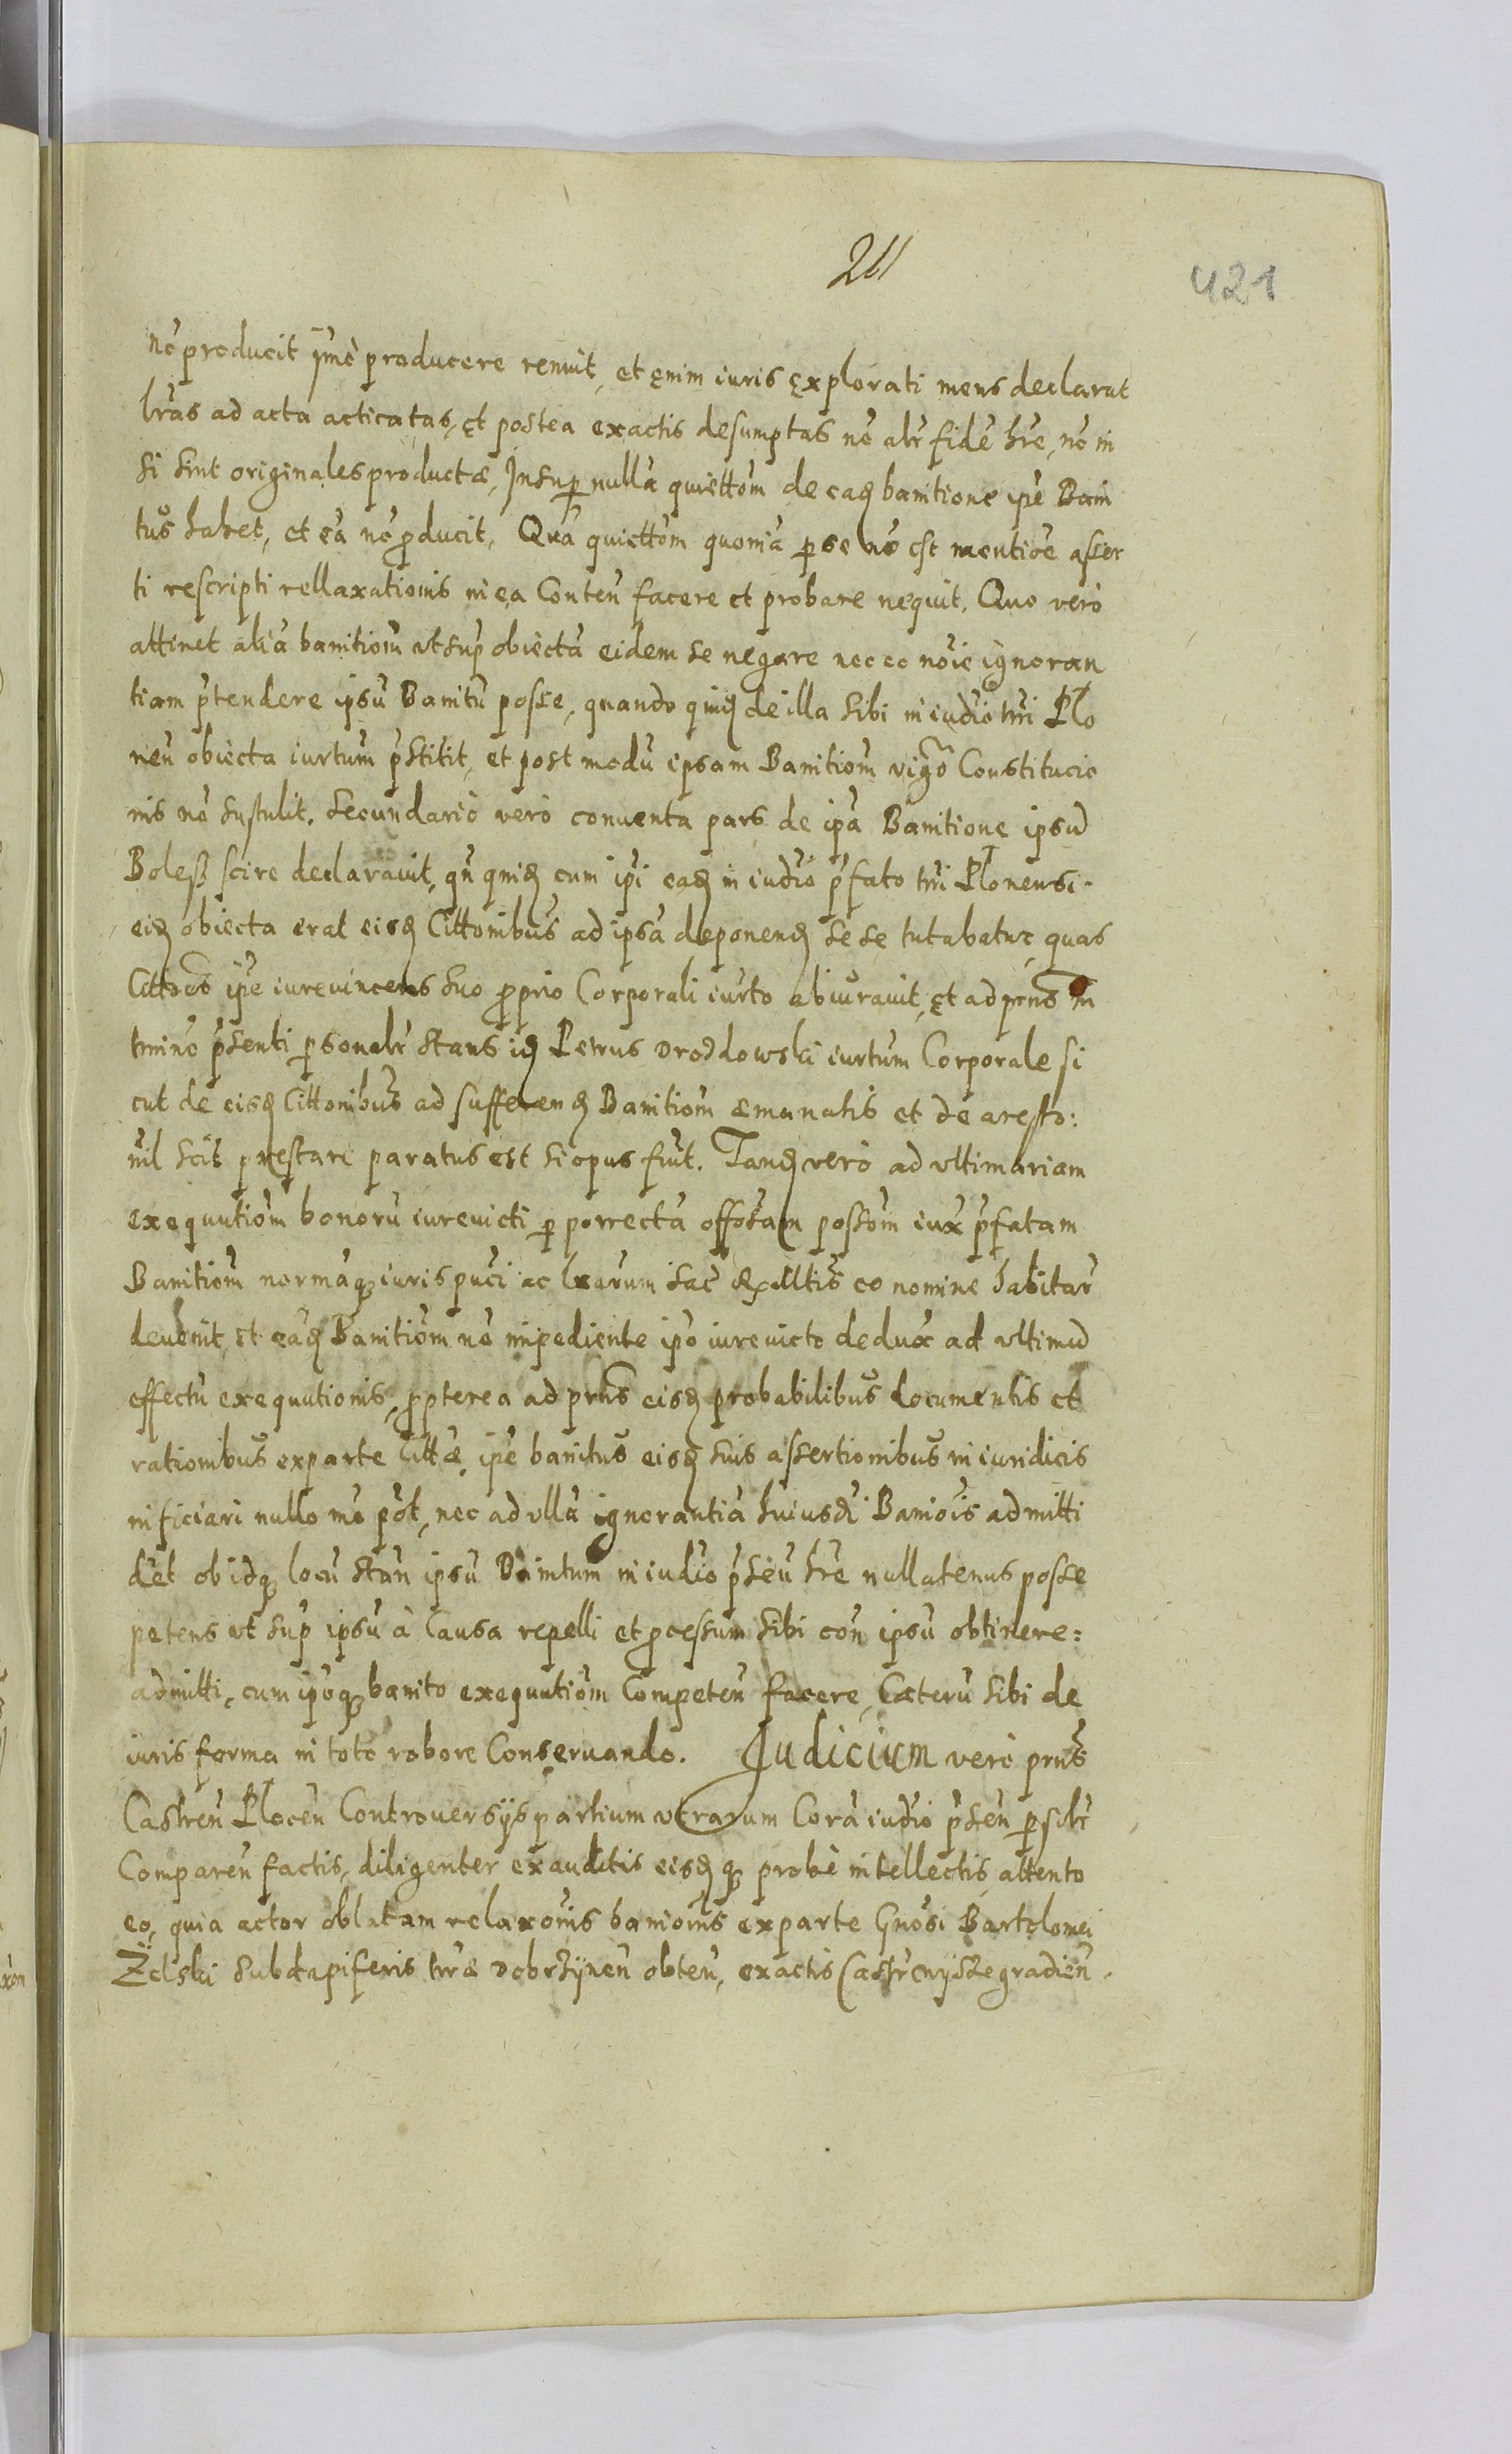 211
421
nō producit ȳmò producere renuit, et enim iuris explorati mens declarat
lrās ad acta acticatas, et postea exactis desumptas nō alr̄ fidē hr̄e, nō in
si sint originales productæ, Insup nullā quiettōm de eaḍ banitione ip̄e Bani
tus habet, et eā nō producit, Quā quiettōm quoniā per se nō est mentiōe asser
ti rescripti rellaxationis in ea Conten̄ facere et probare nequit. Quo verò
attinet aliā banitiōm vt sup̄ obiectā eidem se negare nec eo nōie ignoran
tiam p̄tendere ipsū Banitū posse, quando quiḍ de illa sibi in iudīo tr̄ri Plo
nen̄ obiecta iurtum p̄stitit, et post modū ipsam Banitiōm vigō Constitucio
nis nō sustulit. Secundariò verò conuenta pars de ip̄a Banitione ipsū
Boless scire declarauit, qn̄ quiḍ cum ip̄i eaḍ in iudīo p̄fato tr̄ri Plonensi
eiḍ obiecta erat eisḍ Cittōnibus ad ipsā deponenḍ se se tutabatur, quas
Cittōēs ip̄e iurevincens suo proprio Corporali iurto abiurauit, et ad prn̄s in
tr̄mino p̄senti personalr̄ stans iḍ Petrus Drozdowski iurtum Corporale si
cut de eisḍ Cittōnibus ad sufferenḍ Banitiōm æmanatis et de aresto:
nil scit præstare paratus est si opus fuīt. Tanḍ verò ad vltimariam
exequutiōm bonorū iurevicti per porrectā offōsam possōm iux̄ p̄fatam
Banitiōm normāq iuris pūci ac lrarum Sac̄ R Mltis eo nomine habitar̄
deuenit, et eaḍ Banitiōm nō impediente ip̄o iurevicto dedux̄ ad vltimū
effectū exequutionis, propterea ad prn̄s eisḍ probabilibus documentis et
rationibus exparte Cittæ, ip̄e banitus eisḍ suis assertionibus in iuridicis
inficiari nullo mō pōt, nec ad ullā ignorantiā huiusḍi Baniōis admitti
dēt ob idq locū stan̄ ipsū Banitum in iudīo p̄sen̄ hr̄e nullatenus posse
petens vt sup̄ ipsū à Causa repelli et processum sibi con̄ ipsū obtinere:
admitti, cum ip̄oq banito exequutiōm Competen̄ facere, Cæterū sibi de
iuris forma in toto robore Conseruando. Judicium verò prn̄s
Castren̄ Plocen̄ Controuersijs partium vtrarum Corā iudīo p̄sen̄ personlr̄
Comparen̄ factis, diligenter exauditis eisḍ q probè intellectis, attento
eo, quia actor oblatam relaxōnis baniōnis exparte Gn̄osi Bartolomei
Żelski Subdapiferis tr̄ræ Dobrzÿnen̄ obten̄, exactis Castr̄ wyszegradien̄